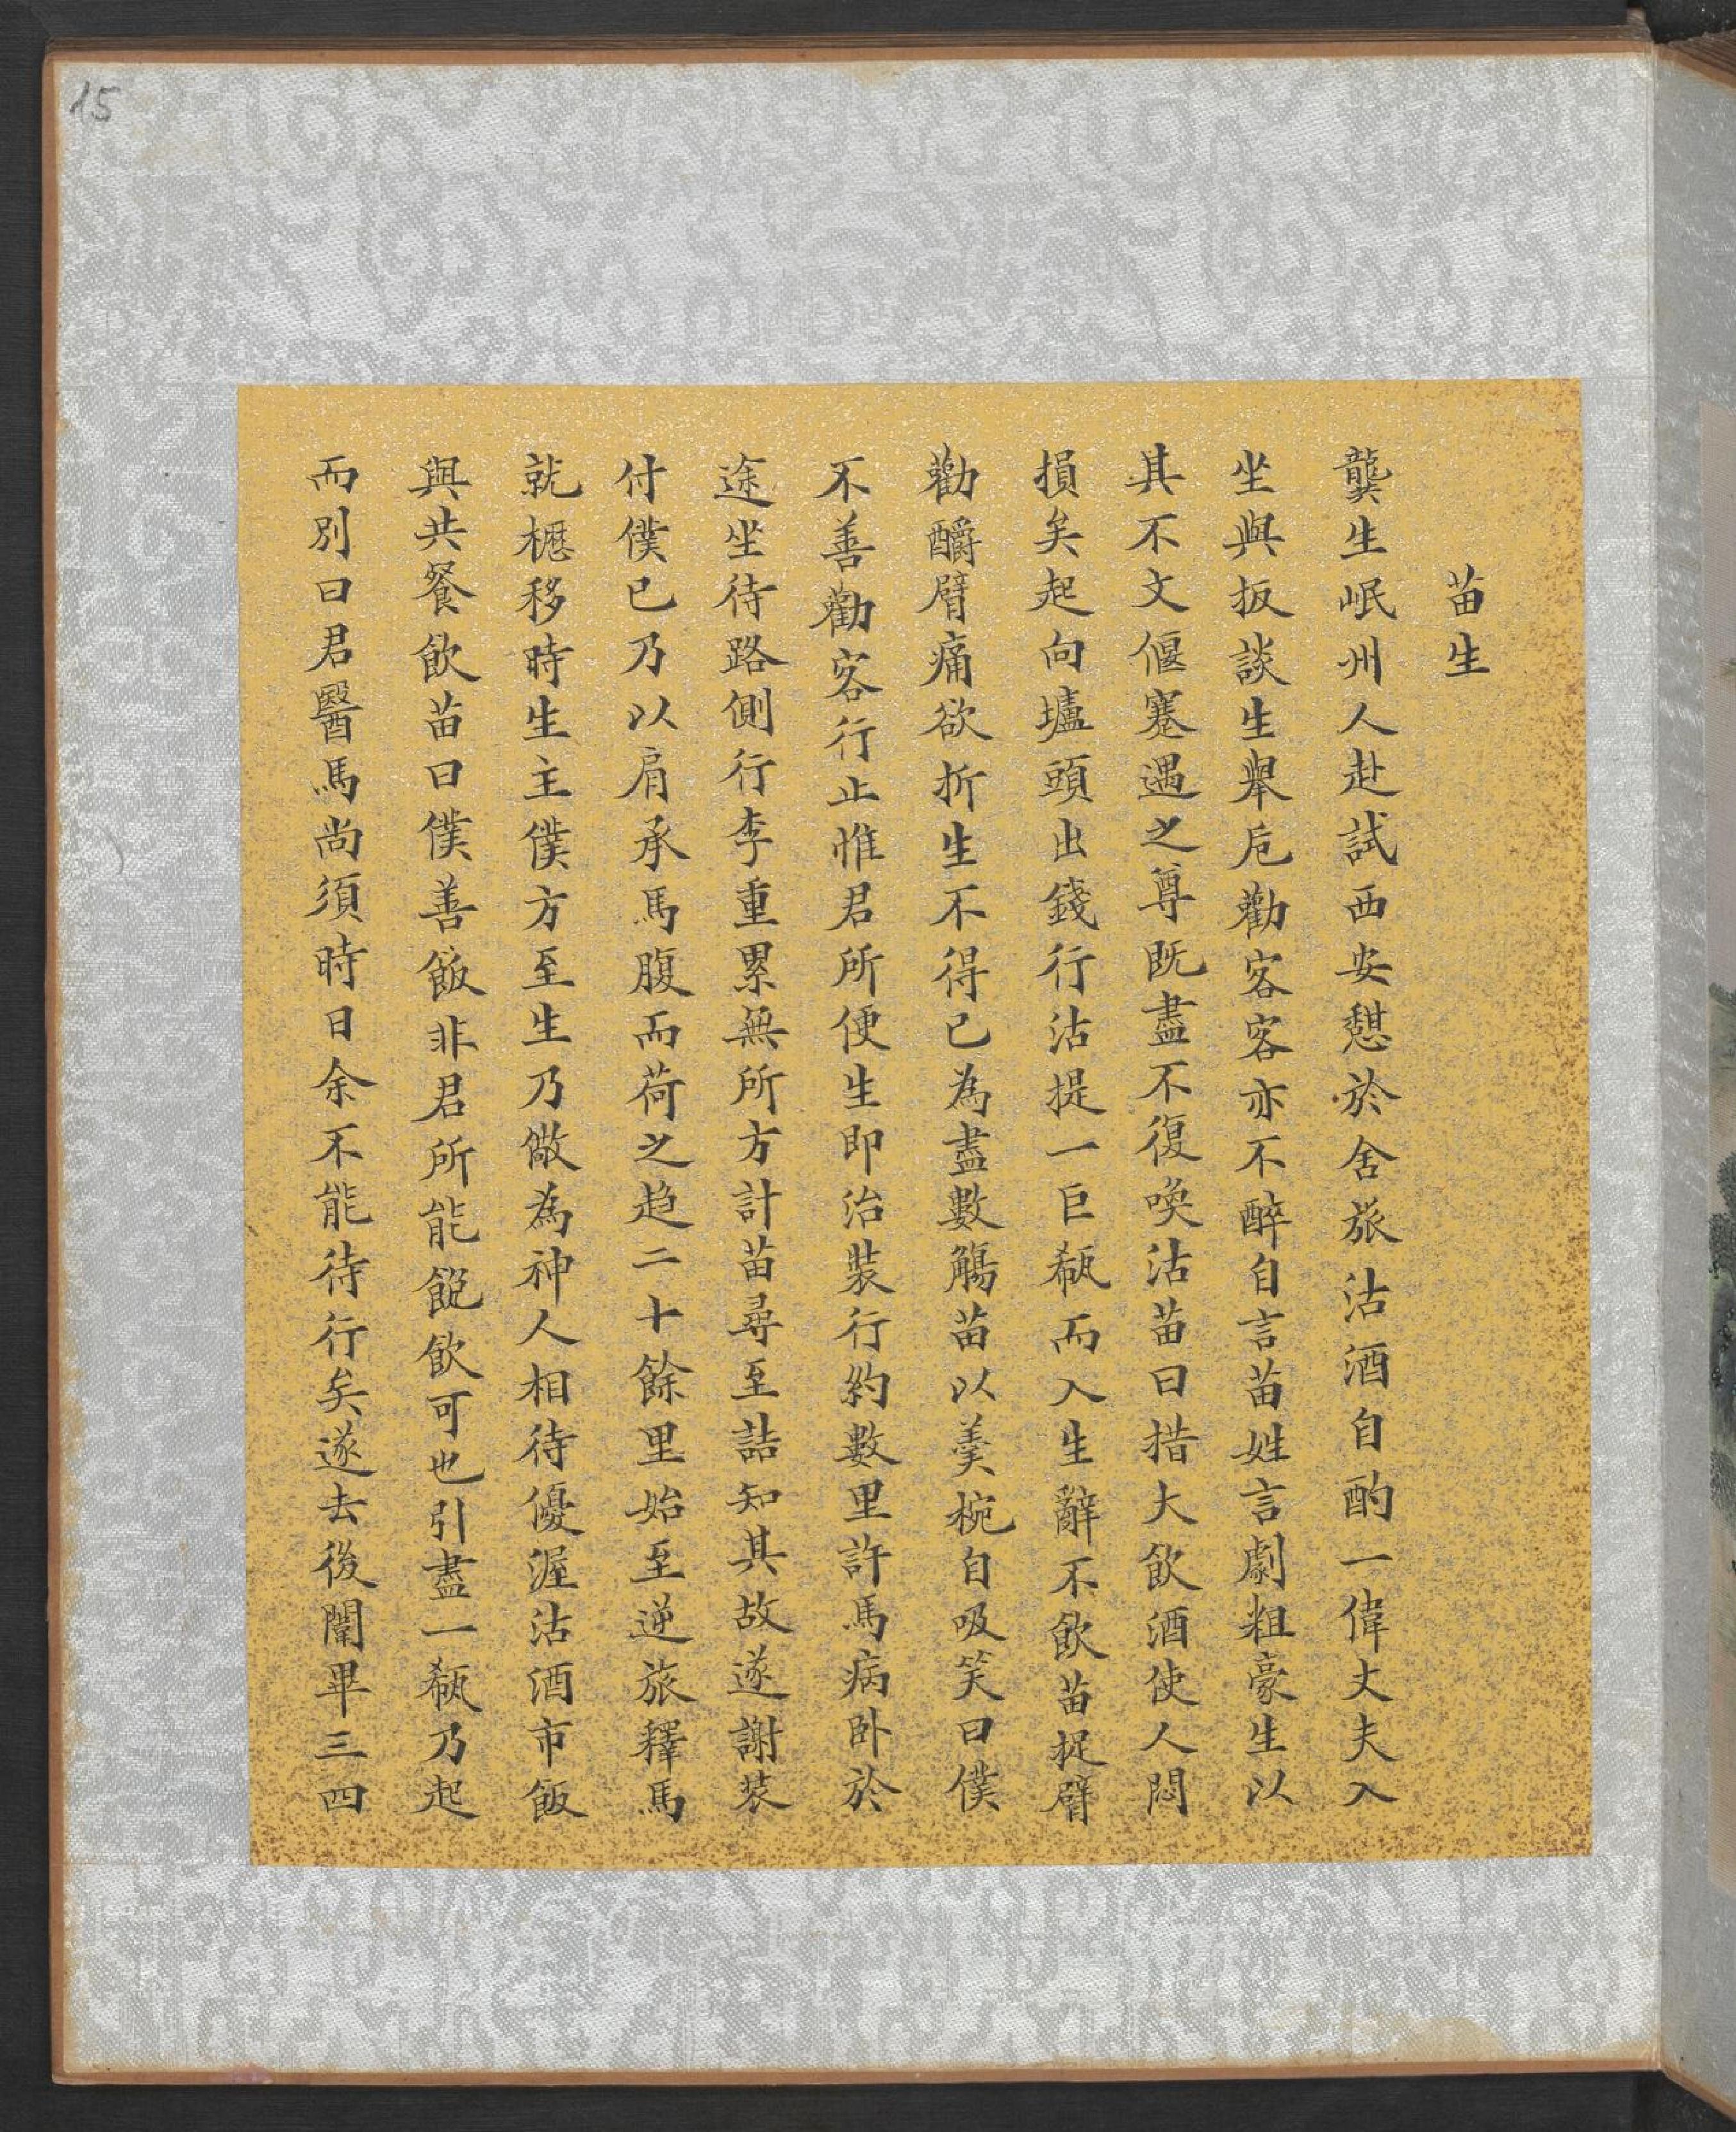 15
苗生
龔生岷州人赴試西安憇於舍旅沽酒自酌一偉丈夫入
坐與扳談生舉卮勸客客亦不醉自言苗姓言劇粗豪生以
其不文偃蹇遇之尊既盡不復喚沽苗曰措大飲酒使人悶
損矣起向壚頭出錢行沽提一巨瓻而入生辭不飲苗捉臂
勸釂臂痛欲折生不得已為盡數觴苗以羹椀自吸笑曰僕
不善勸客行止惟君所便生即治裝行約數里許馬病卧於
途坐待路側行李重累無所方計苗尋至詰知其故遂謝裝
付僕已乃以肩承馬腹而荷之趋二十餘里始至逆旅釋馬
就櫪移時生主僕方至生乃儆為神人相待優渥沽酒市飯
與共餐飲苗曰僕善飯非君所能飽飲可也引盡一瓻乃起
而別曰君醫馬尚須時日余不能待行矣遂去後闈畢三四